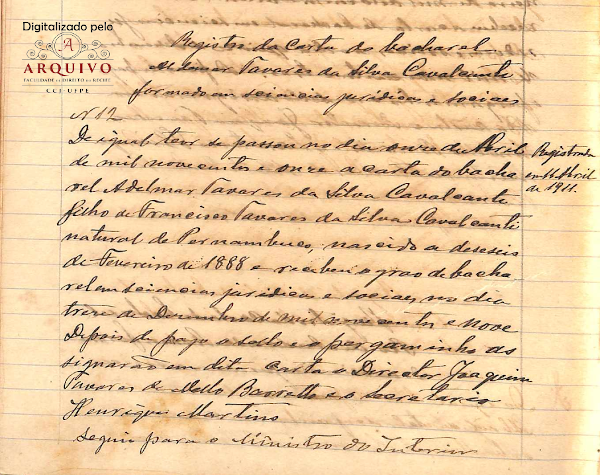 Digitalizado pelo
A
ARQUIVO
FACULDADE DE DIREITO DO RECIFE
CCJ-UFPE
Registro da carta do bacharel
Adelmar Tavares da Silva Cavalcanti
formado em sciencias juridicas e sociaes
N 12
De igual teor se passou no dia onze de Abril
de mil novecentos e onze a carta do bacha
rel Adelmar Tavares da Silva Cavalcanti
filho de Francisco Tavares da Silva Cavalcanti
natural de Pernambuco, nascido a deseseis
de Fevereiro de 1888 e recebeu o grao de bacha
rel em sciencias juridicas e sociaes no dia
treze de Dezembro de mil novecentos e nove
Depois de pago o sello e o pergaminho as
signarão em dita carta o Director Joaquim
Tavares de Mello Barretto e o Secretario
Henrique Martins
Seguiu para o Ministro do Interior
Registrada
em 11 Abril
de 1911.